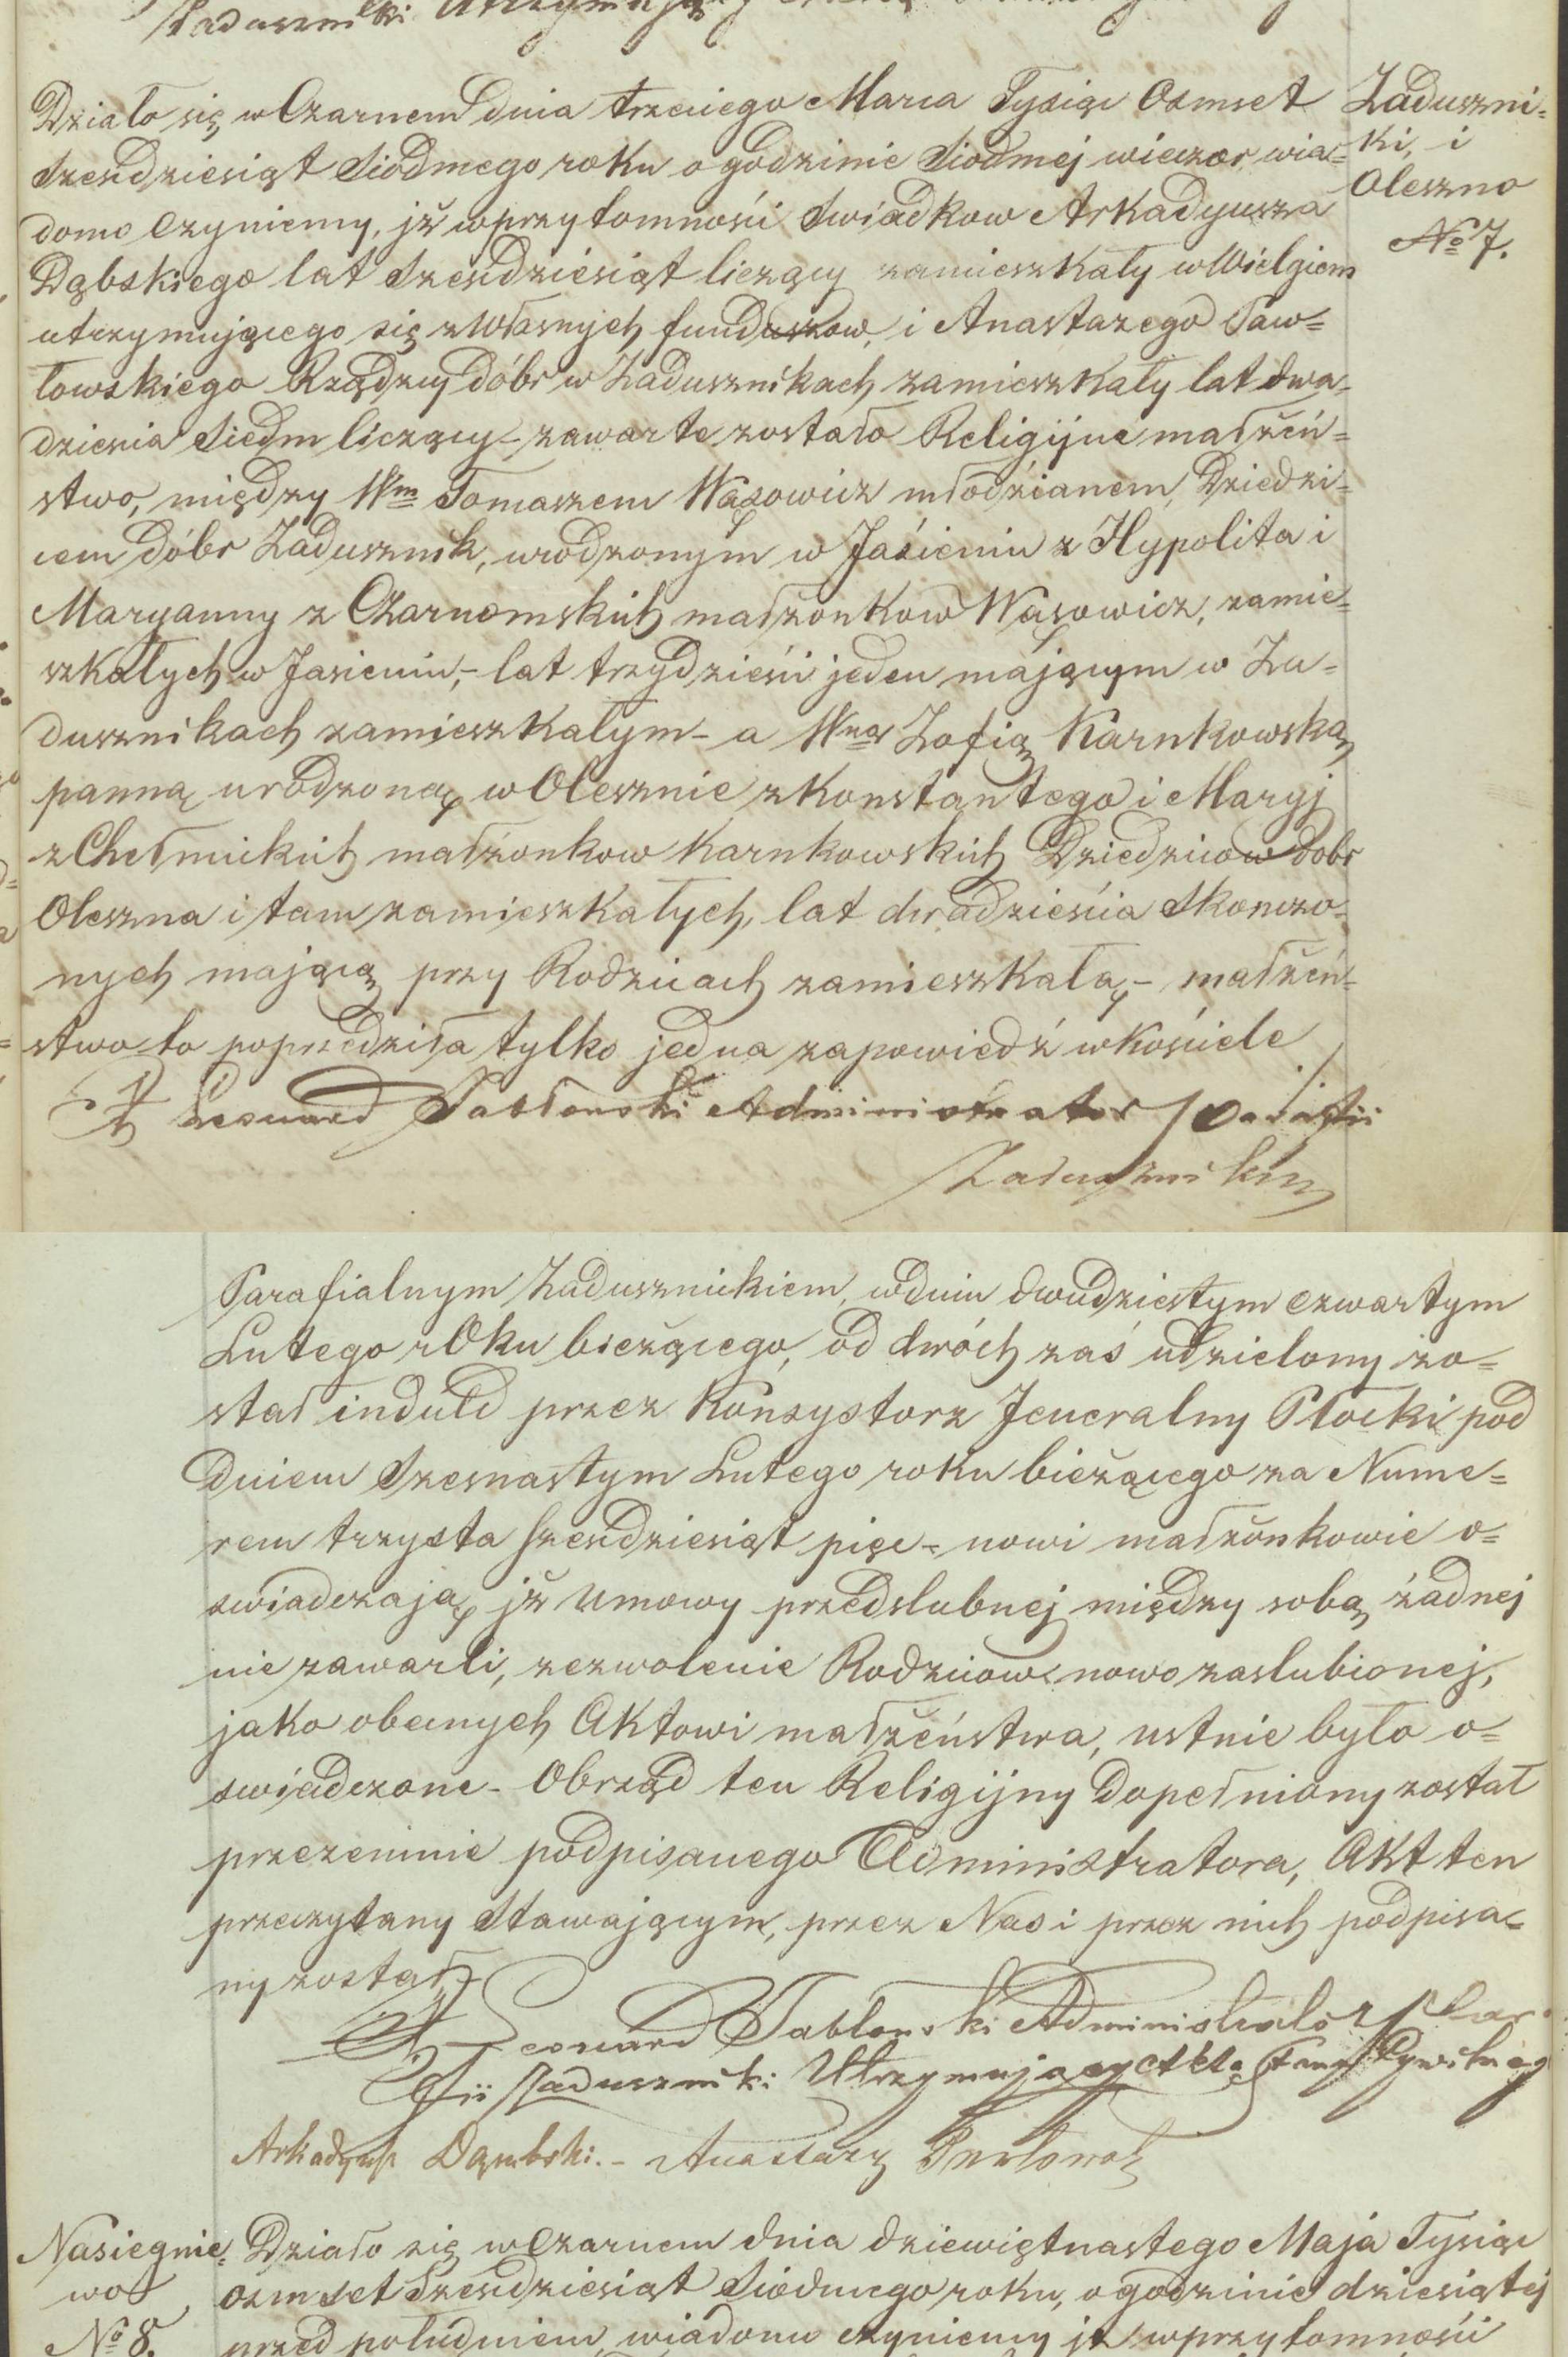 Zaduszniki Utrzymujący
Działo się w Czarnem dnia trzeciego Marca Tysiąc Osmset
Szesdziesiąt Siodmego roku o godzinie Siodmej wieczor, wia=
domo Czyniemy, jż w przytomności Swiadkow Arkadyusza
Dąbskiego lat Szesdziesiąt liczący zamieszkały w Wielgiem
utrzymującego się z własnych funduszow, i Anastazego Paw=
łowskiego Rządzcy dóbr w Zadusznikach zamieszkały lat dwa-
dziescia Siedm liczący – zawarte zostało Religijne małżeń=
stwo, między Wm Tomaszem Wąsowicz młodzianem, Dziedzi=
cem dóbr Zadusznik, urodzonym w Jasieniu z Hypolita i
Maryanny z Czarnomskich małżonkow Wąsowicz, zamie=
szkałych w Jasieniu, – lat trzydzieści jeden mającym w Za=
dusznikach zamieszkałym – a Wną Zofią Karnkowską
panną urodzoną w Olesznie z Konstantego i Maryj
z Chełmickich małżonkow Karnkowskich Dziedzicow dobr
Oleszna i tam zamieszkałych, lat dwadzieścia Skonczo=
nych mającą przy Rodzicach zamieszkałą, – małżeń=
stwo to poprzedziła tylko jedna zapowiedź w kościele
X Leonard Jabłonski Administrator Parafii
Zaduszniki
Zaduszni=
ki, i
Oleszno
No 7.
Parafialnym Zadusznickiem, w dniu dwudziestym czwartym
Lutego rOku bieżącego, od dwóch zaś udzielony zo=
stał indult przez Konsystorz Jeneralny Płocki pod
Dniem Szesnastym Lutego roku bieżącego za Nume=
rem trzysta szesdziesiąt pięc – nowi małżonkowie o=
swiadczają, jż umowy przedslubnej między sobą żadnej
nie zawarli, zezwolenie Rodzicow nowo zaslubionej,
jako obecnych Aktowi małżeństwa, ustnie było o=
swiadczone – Obrząd ten Religijny Dopełniony został
przezemnie podpisanego Administratora, Akt ten
przeczytany Stawającym, przez Nas i przez nich podpisa=
ny został –
X Leonard Jabłonski Administrator Para
fii Zaduszniki Utrzymujacy Akta Stanu Cywilnego
Arkadyusz Dąmbski. – Anastazy Pawłowski
Nasiegnie=
wo
No 8.
Działo się w Czarnem dnia dziewiętnastego Maja Tysiąc
osmset Szesdziesiąt Siodmego roku, o godzinie dziesiątej
przed południem, wiadomo czyniemy jż w przytomności